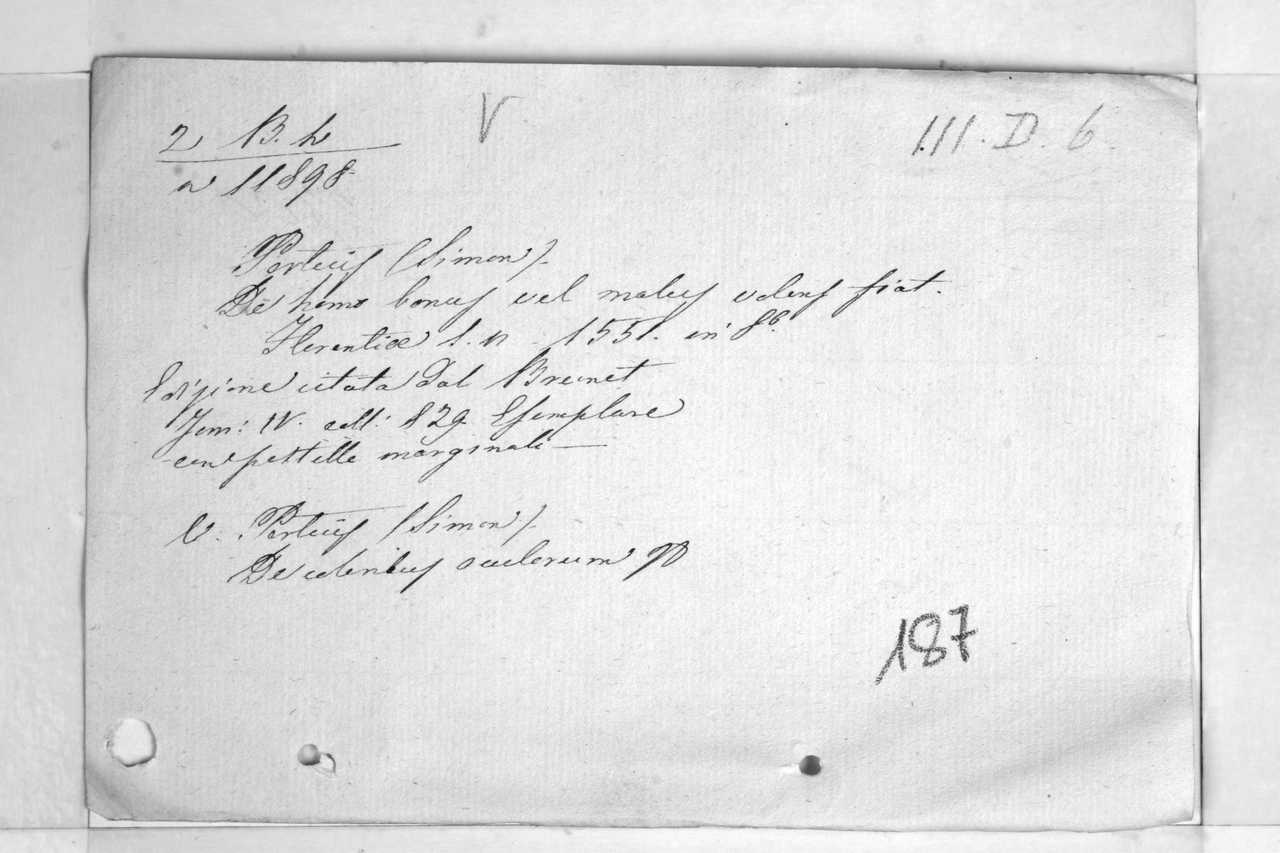 2 B. h
V
III. D. 6.
a 11898
Portius (Simon).
De homo bonus vel malus volens fiat.
Florentiæ s. n. 1551. in 8.º
Edizione citata dal Brunet
Tom: IV. coll: 829. Esemplare
con postille marginali —
V. Portius (Simon).
De coloribus oculorum
187